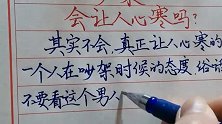 会让人心寒吗?
其实不会,真正让人心寒的
一个人在吵架时候的态度,俗话
不要看这个男人